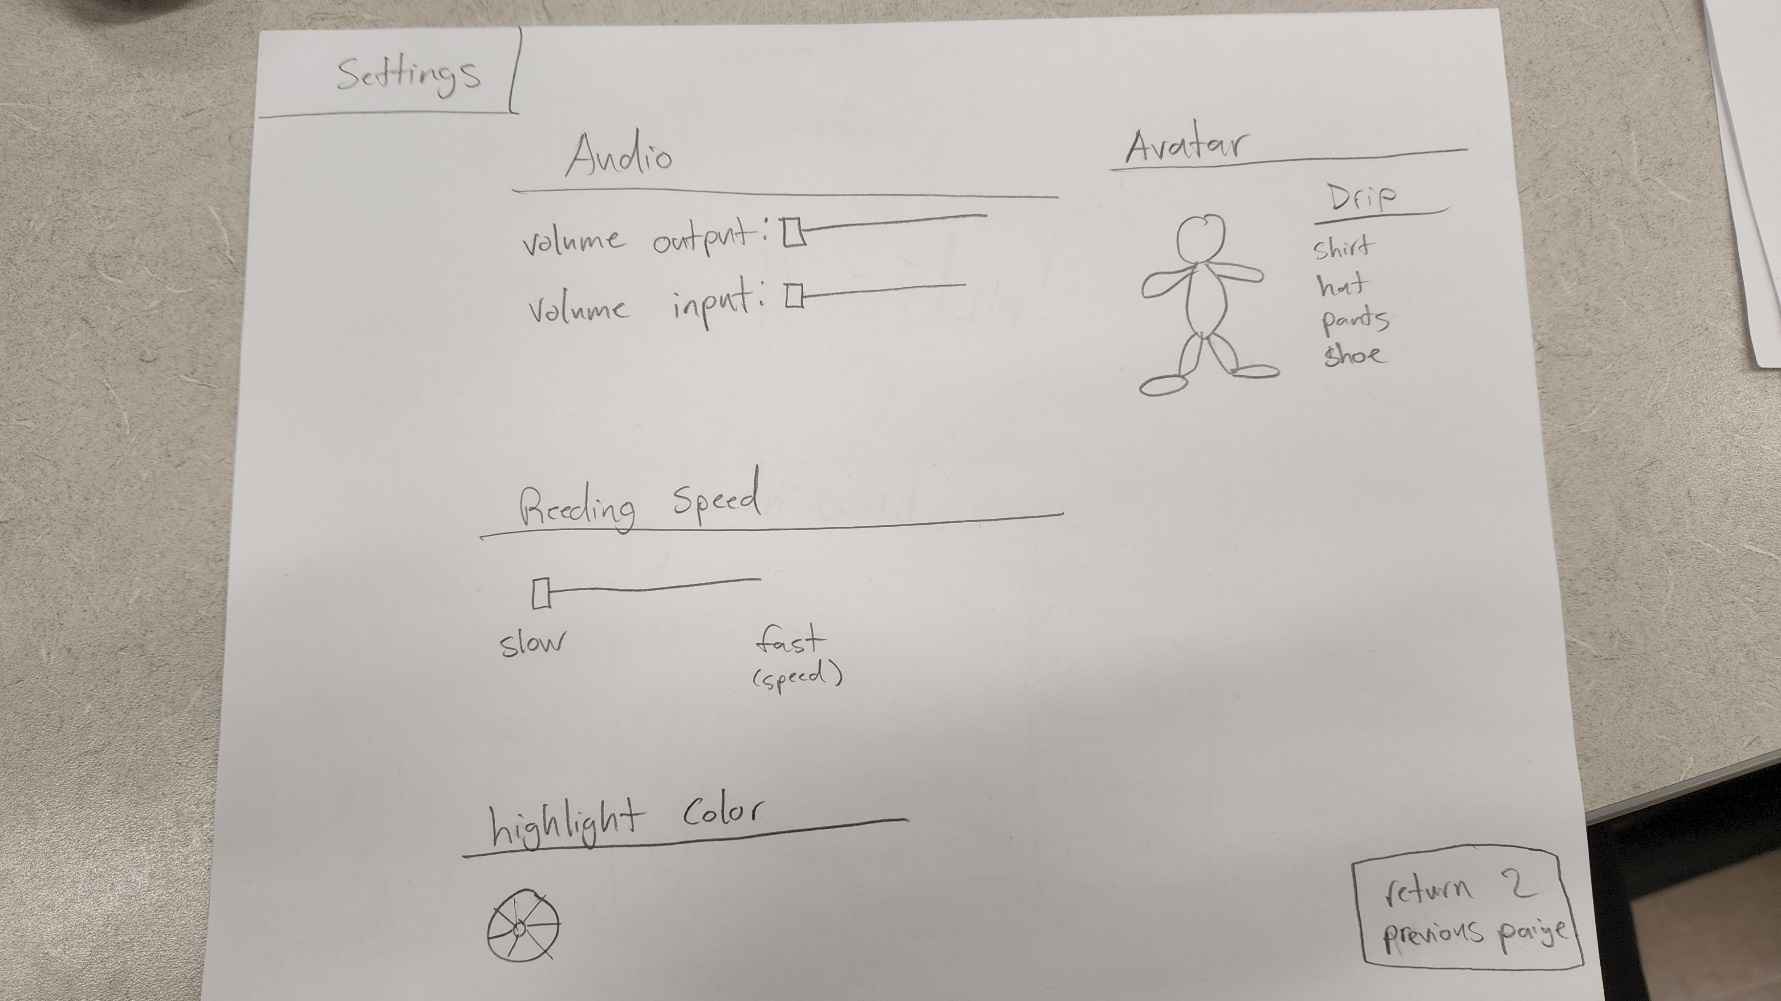 Settings
Audio
volume output:
volume input:
Avatar
Drip
shirt
hat
pants
shoe
Reeding Speed
slow
fast
(speed)
highlight Color
return 2
previous paige